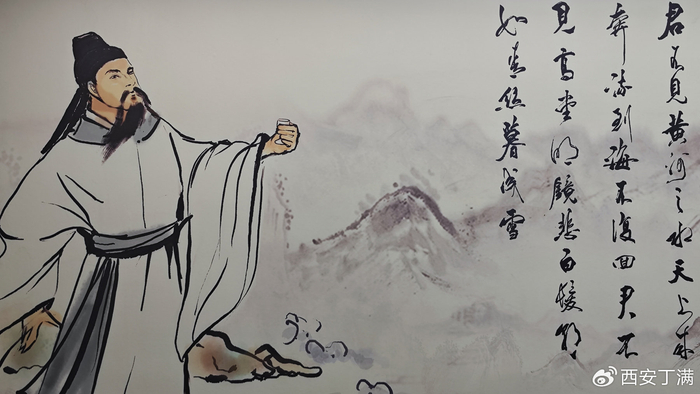 君不見黄河之水天上来
奔流到海不復回君不
見高堂明鏡悲白髮朝
如青絲暮成雪
西安丁满